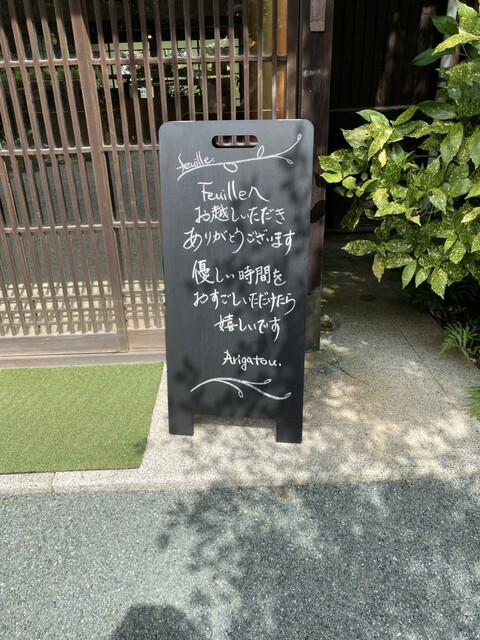 feuille.
Feuilleへ
お越しいただき
ありがとうございます
優しい時間を
おすごしいただけたら
嬉しいです
Arigatou.